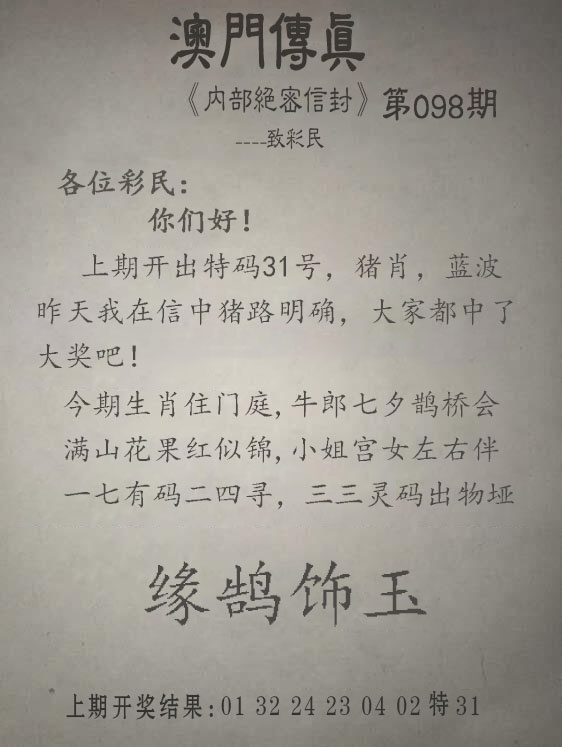 澳門傳真
《内部絕密信封》第098期
----致彩民
各位彩民:
你们好!
上期开出特码31号，猪肖，蓝波
昨天我在信中猪路明确，大家都中了
大奖吧!
今期生肖住门庭,牛郎七夕鹊桥会
满山花果红似锦,小姐宫女左右伴
一七有码二四寻，三三灵码出物垭
缘鹄饰玉
上期开奖结果:01 32 24 23 04 02特31